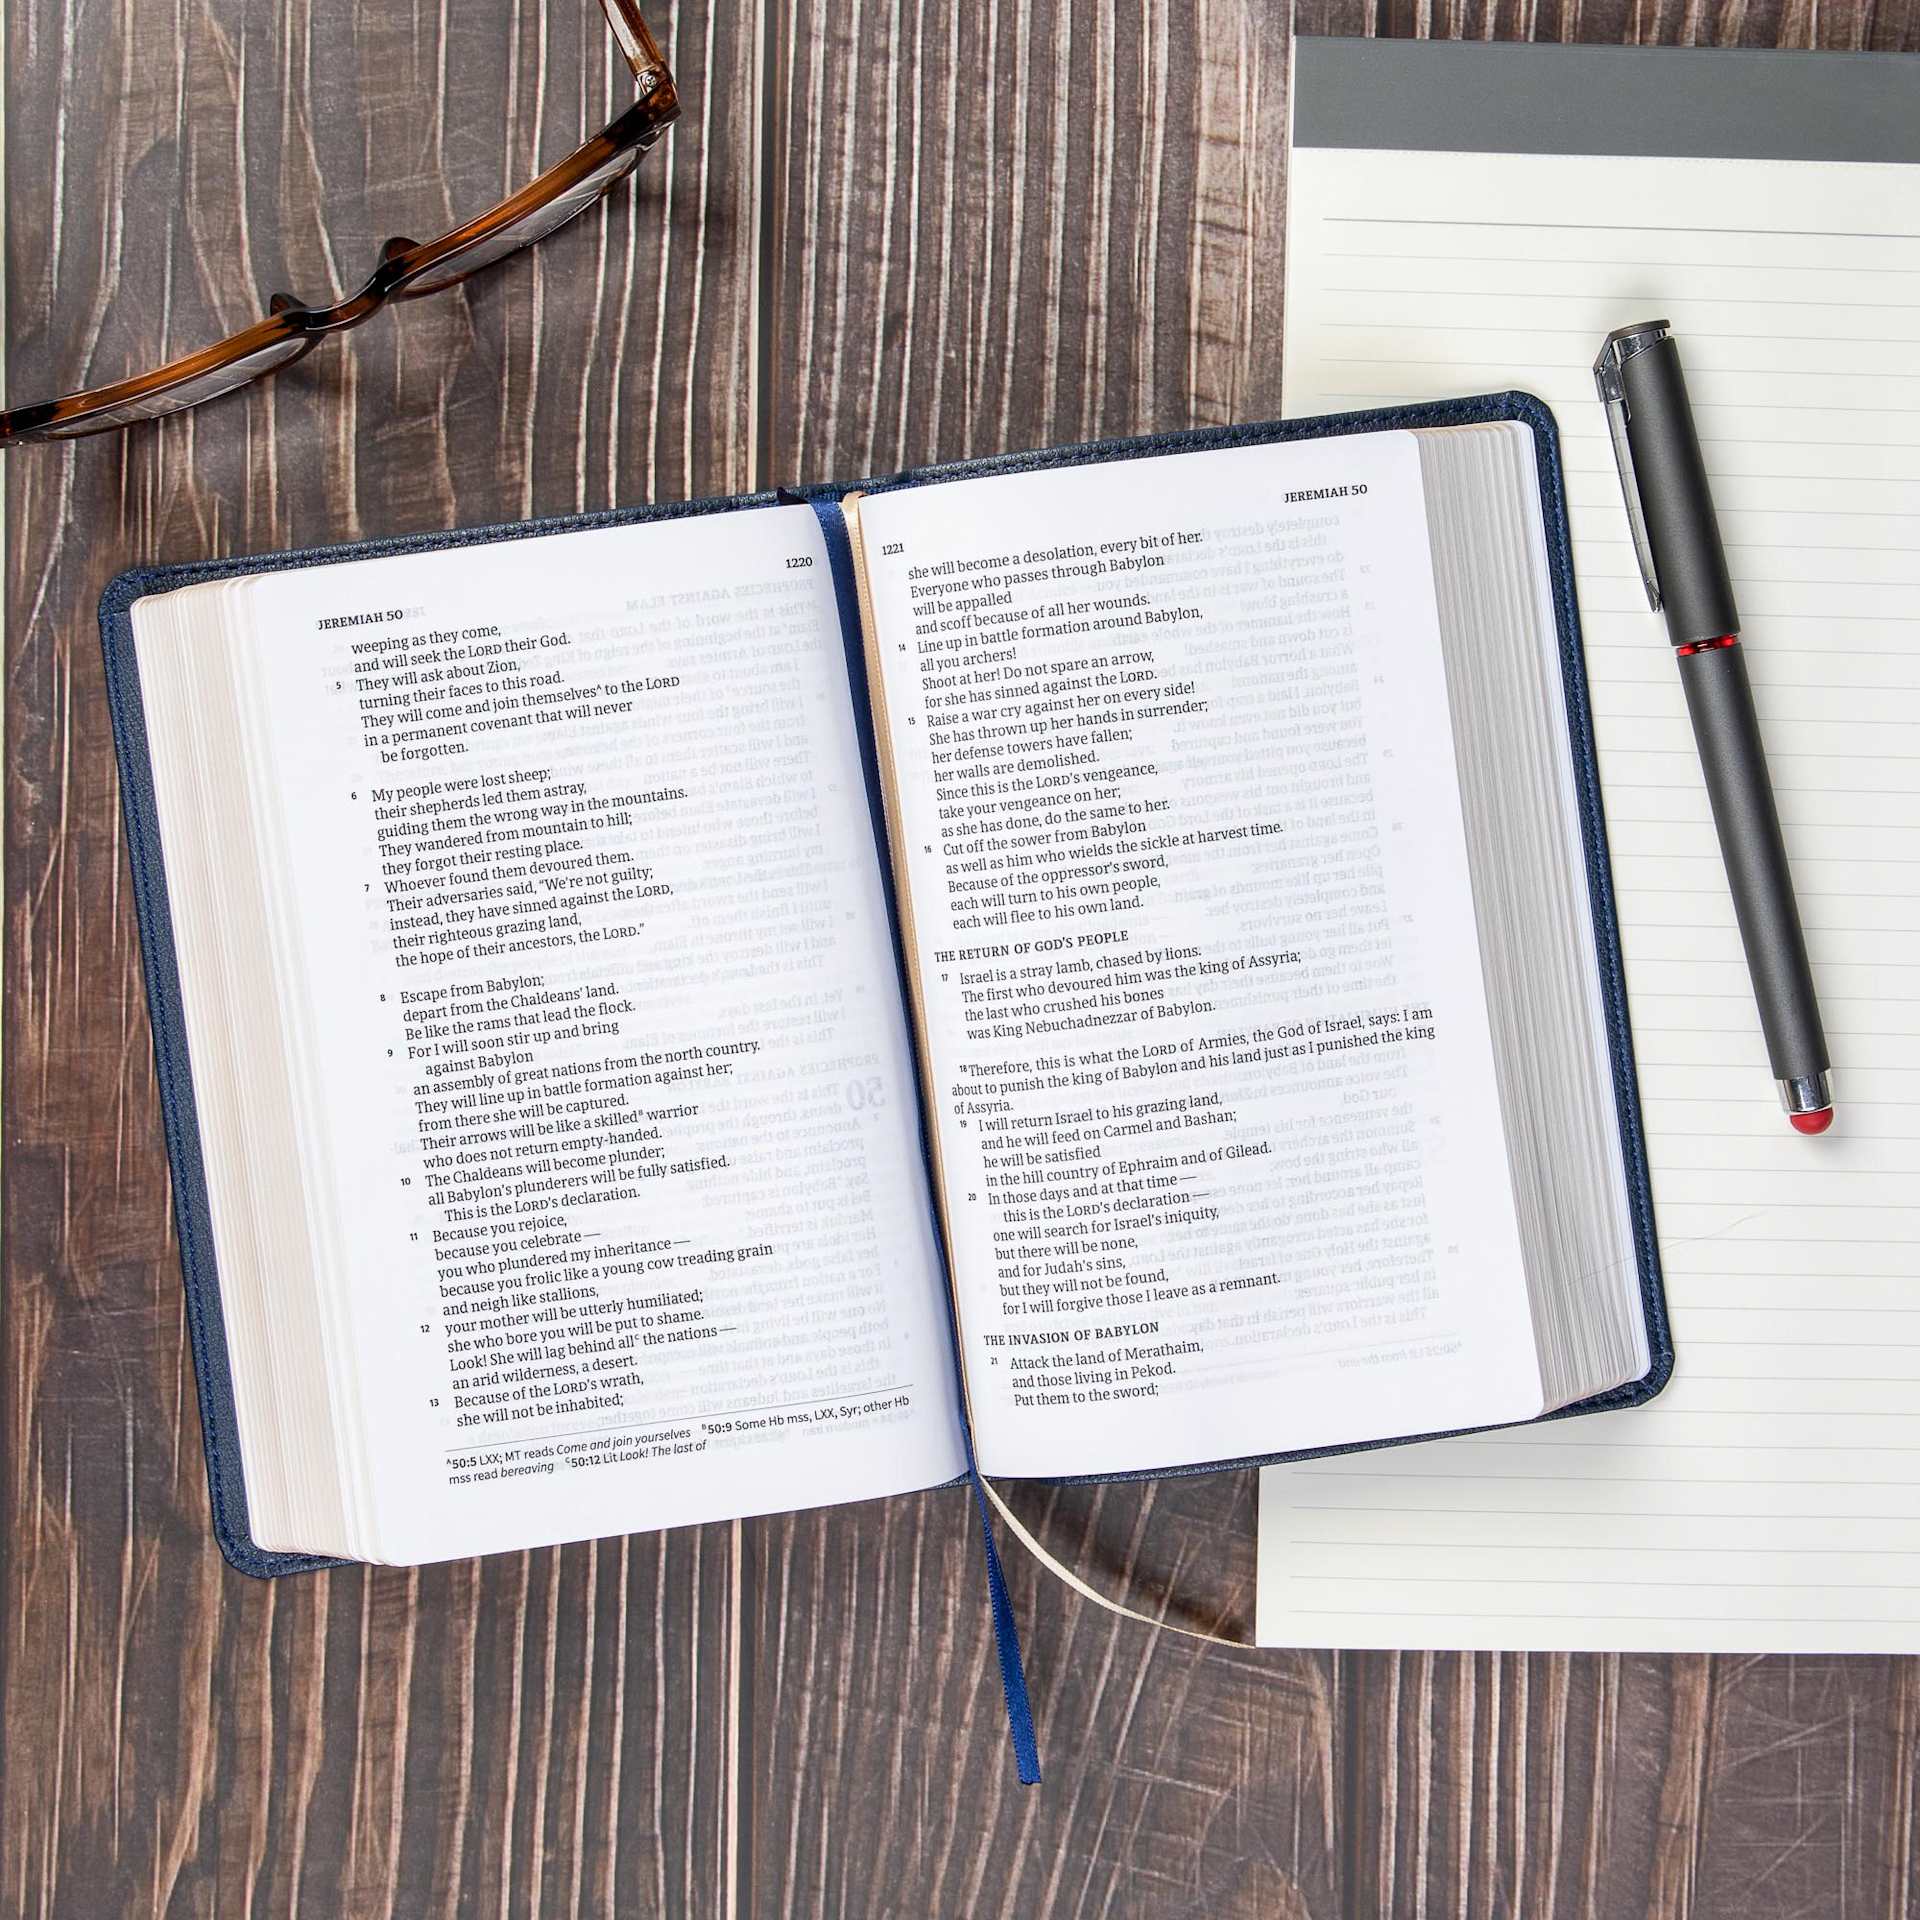 JEREMIAH 50
1220
weeping as they come,
and will seek the LORD their God.
5 They will ask about Zion,
turning their faces to this road.
They will come and join themselvesᴬ to the LORD
in a permanent covenant that will never
be forgotten.
6 My people were lost sheep;
their shepherds led them astray,
guiding them the wrong way in the mountains.
They wandered from mountain to hill;
they forgot their resting place.
7 Whoever found them devoured them.
Their adversaries said, “We're not guilty;
instead, they have sinned against the LORD,
their righteous grazing land,
the hope of their ancestors, the LORD.”
8 Escape from Babylon;
depart from the Chaldeans' land.
Be like the rams that lead the flock.
9 For I will soon stir up and bring
against Babylon
an assembly of great nations from the north country.
They will line up in battle formation against her;
from there she will be captured.
Their arrows will be like a skilledᴮ warrior
who does not return empty-handed.
10 The Chaldeans will become plunder;
all Babylon's plunderers will be fully satisfied.
This is the LORD's declaration.
11 Because you rejoice,
because you celebrate —
you who plundered my inheritance —
because you frolic like a young cow treading grain
and neigh like stallions,
12 your mother will be utterly humiliated;
she who bore you will be put to shame.
Look! She will lag behind allᶜ the nations —
an arid wilderness, a desert.
13 Because of the LORD's wrath,
she will not be inhabited;
ᴬ50:5 LXX; MT reads Come and join yourselves ᴮ50:9 Some Hb mss, LXX, Syr; other Hb
mss read bereaving ᶜ50:12 Lit Look! The last of
1221
JEREMIAH 50
she will become a desolation, every bit of her.
Everyone who passes through Babylon
will be appalled
and scoff because of all her wounds.
14 Line up in battle formation around Babylon,
all you archers!
Shoot at her! Do not spare an arrow,
for she has sinned against the LORD.
15 Raise a war cry against her on every side!
She has thrown up her hands in surrender;
her defense towers have fallen;
her walls are demolished.
Since this is the LORD's vengeance,
take your vengeance on her;
as she has done, do the same to her.
16 Cut off the sower from Babylon
as well as him who wields the sickle at harvest time.
Because of the oppressor's sword,
each will turn to his own people,
each will flee to his own land.
THE RETURN OF GOD'S PEOPLE
17 Israel is a stray lamb, chased by lions.
The first who devoured him was the king of Assyria;
the last who crushed his bones
was King Nebuchadnezzar of Babylon.
18 Therefore, this is what the LORD of Armies, the God of Israel, says: I am
about to punish the king of Babylon and his land just as I punished the king
of Assyria.
19 I will return Israel to his grazing land,
and he will feed on Carmel and Bashan;
he will be satisfied
in the hill country of Ephraim and of Gilead.
20 In those days and at that time —
this is the LORD's declaration —
one will search for Israel's iniquity,
but there will be none,
and for Judah's sins,
but they will not be found,
for I will forgive those I leave as a remnant.
THE INVASION OF BABYLON
21 Attack the land of Merathaim,
and those living in Pekod.
Put them to the sword;